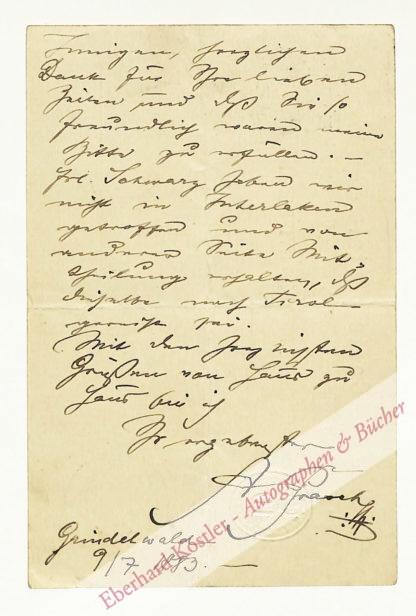 Innigen, herzlichen
Dank für Ihre lieben
Zeilen und daß Sie so
freundlich waren meine
Bitte zu erfüllen. –
Frl. Schwarz haben wir
nicht in Interlaken
getroffen und von
anderer Seite Mit-
theilung erhalten, daß
dieselbe nach Tirol
gereist sei.
Mit den herzlichsten
Grüßen von Haus zu
Haus bin ich
Ihr ergebenster
Grindelwald
9/7 1883. –
Eberhard Köstler - Autographen & Bücher